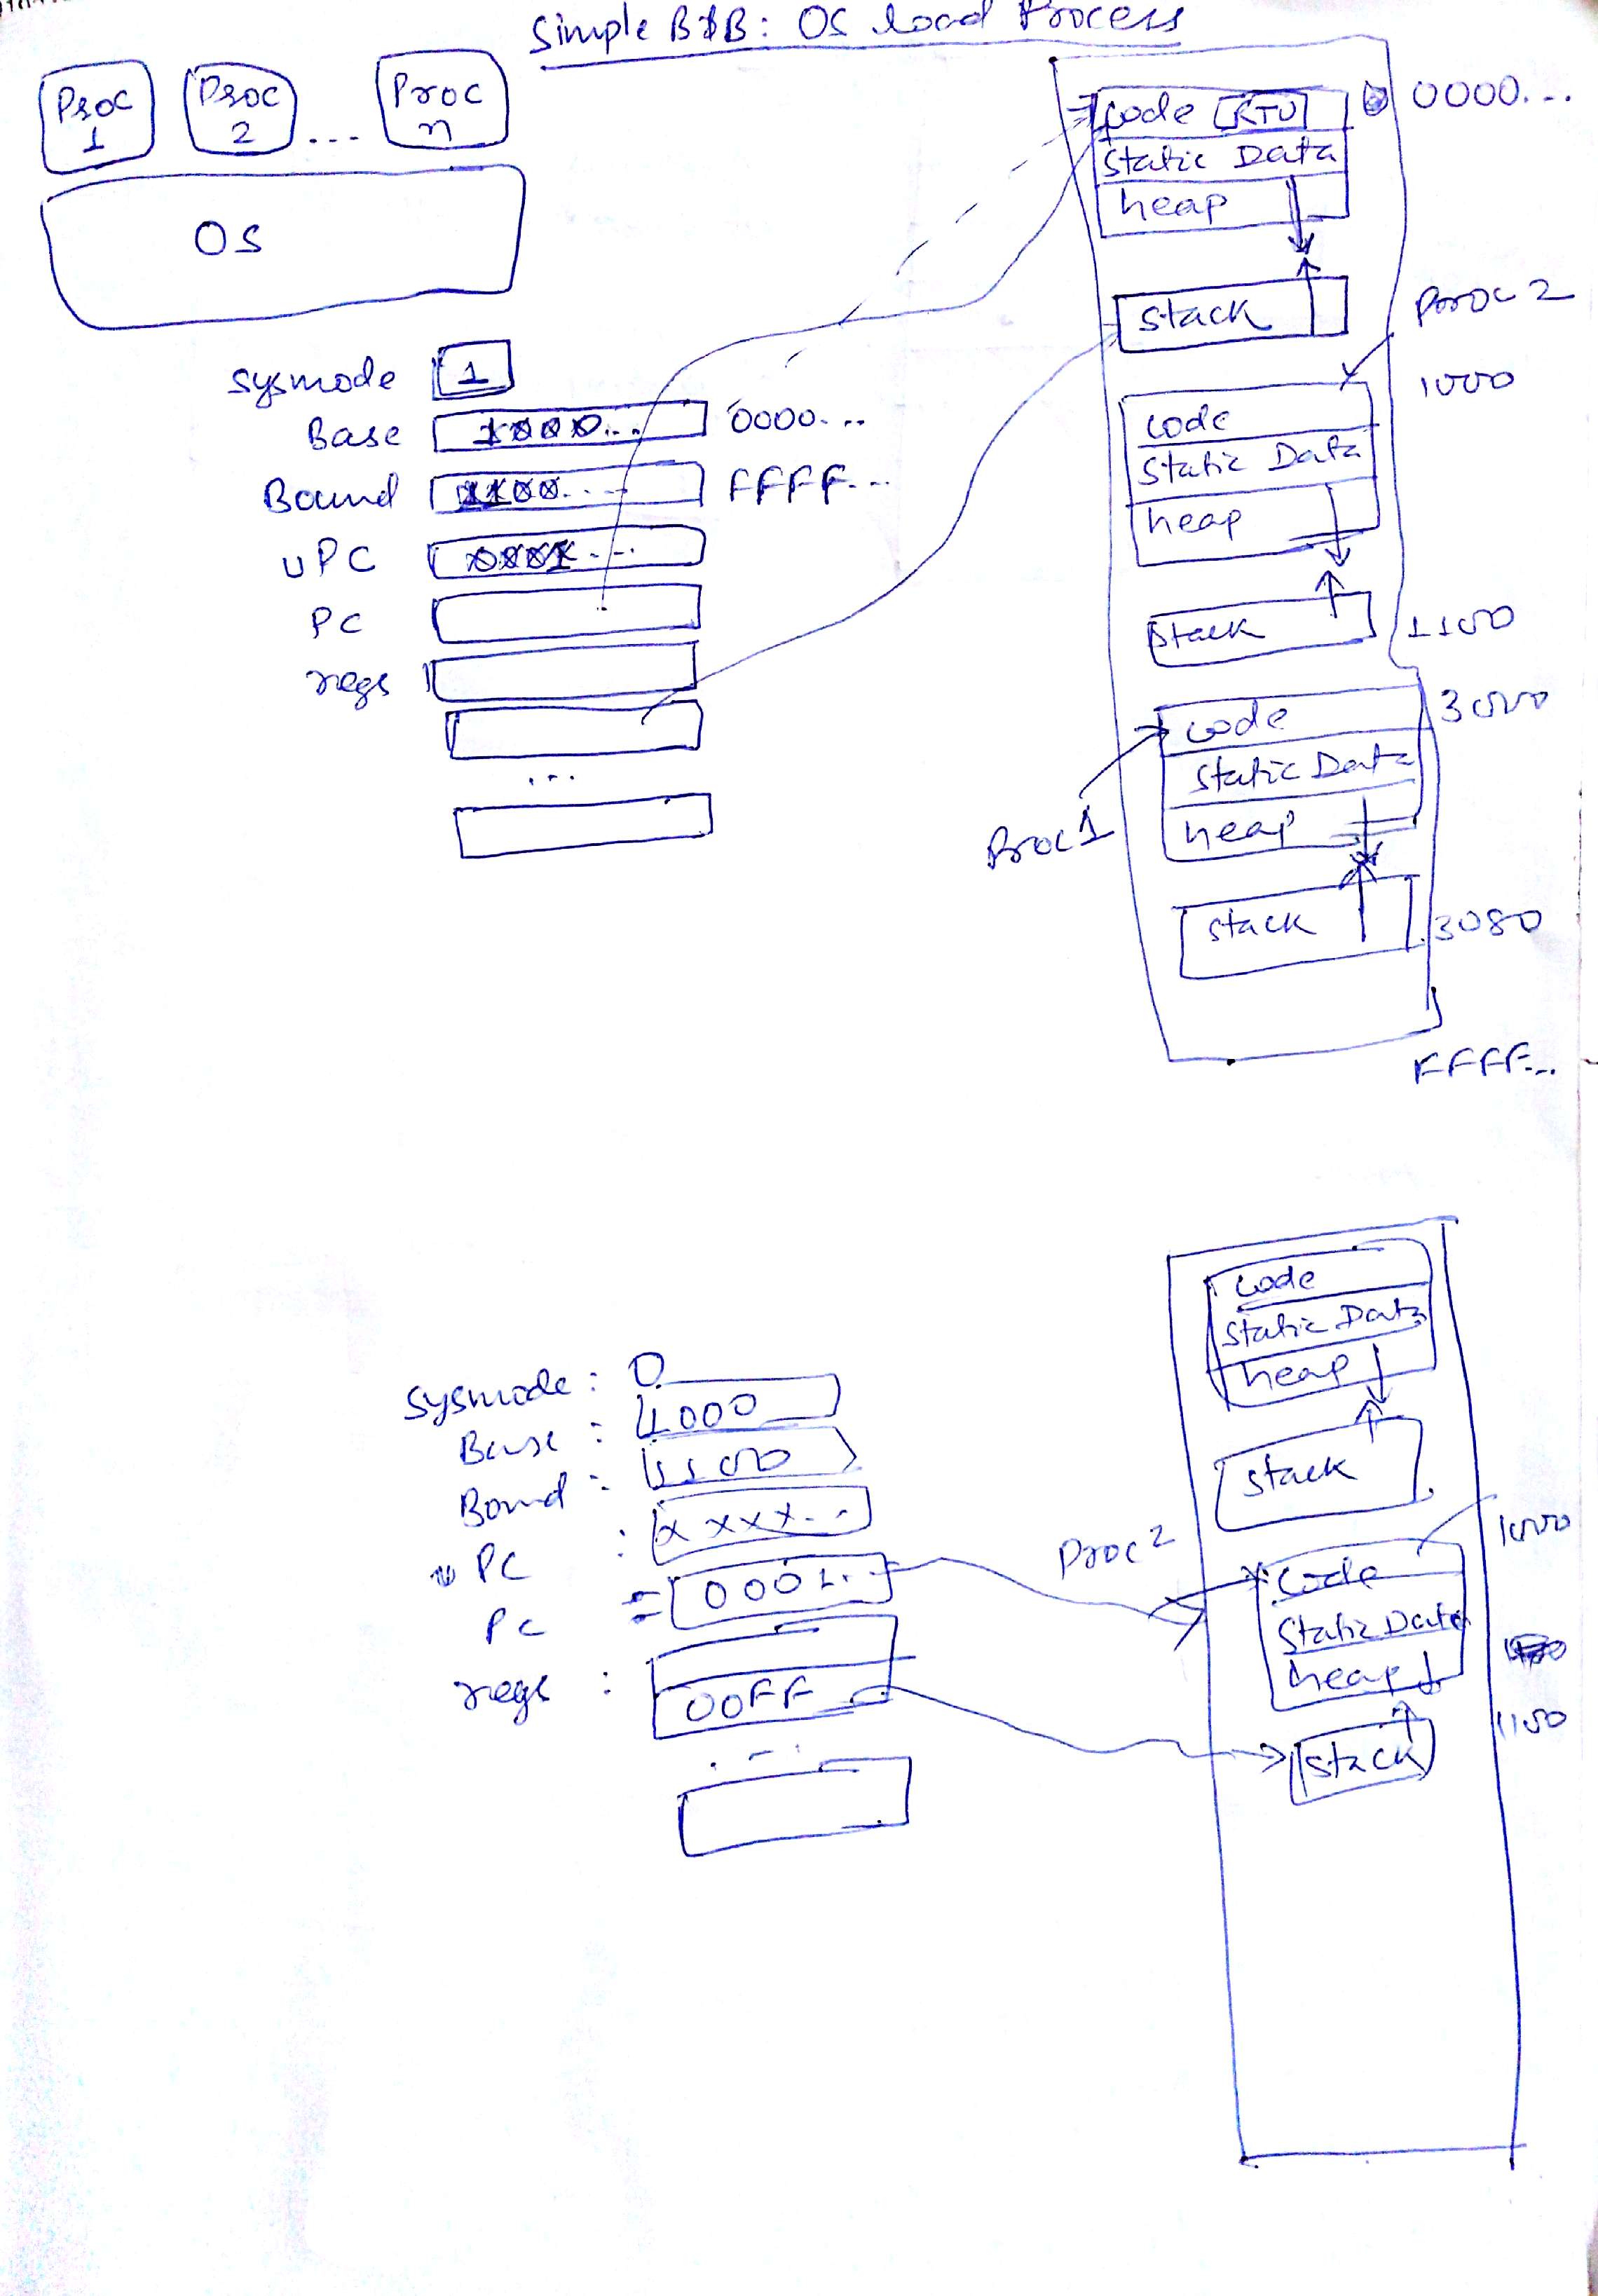 Simple B&B: OS load Process
Proc 1
Proc 2
...
Proc n
OS
sysmode 1
Base 1000... 0000...
Bound 1100... FFFF...
uPC 0001...
PC
regs
...
code RTU
0000...
Static Data
heap
stack
Proc 2
1000
code
Static Data
heap
stack
1100
3000
code
Static Data
heap
Proc 1
stack
3080
FFFF...
sysmode : 0
Base : 1000
Bound : 1100
uPC : xxxx...
PC : 0001..
regs :
00FF
...
code
Static Data
heap
stack
Proc 2
1000
code
Static Data
heap
1100
stack